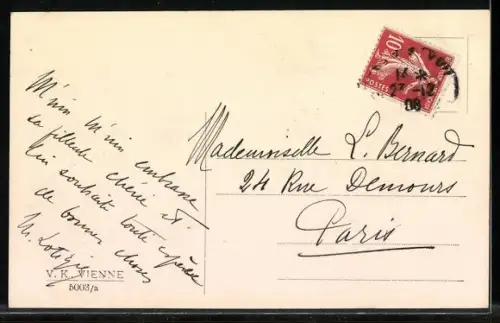 M'nin M'nin embrasse
sa filleule chérie et
lui souhaite toute espèce
de bonnes choses
V. K. VIENNE
5003/a
10
POSTES
17 *
27 -12
08
Mademoiselle L. Bernard
24 Rue Demours
Paris